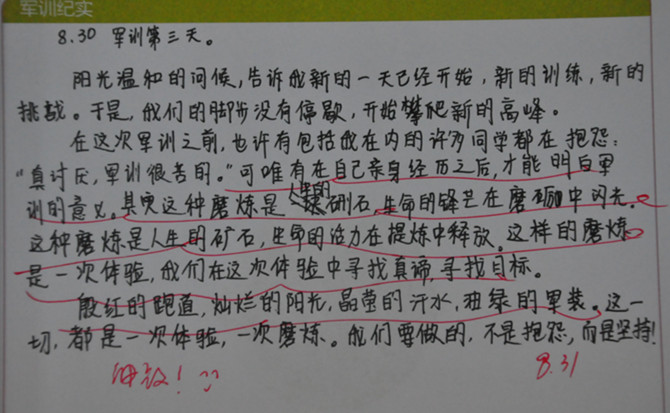 军训纪实
8.30 军训第三天。
阳光温和的问候,告诉我新的一天已经开始,新的训练,新的
挑战。于是,我们的脚步没有停歇,开始攀爬新的高峰。
在这次军训之前,也许有包括我在内的许多同学都在抱怨:
“真讨厌,军训很苦的。”可唯有在自己亲身经历之后,才能明白军
训的意义。其实这种磨炼是人生的砺石,生命的锋芒在磨砺中闪光。
这种磨炼是人生的矿石,生命的活力在提炼中释放。这样的磨炼
是一次体验,我们在这次体验中寻找真谛,寻找目标。
殷红的跑道,灿烂的阳光,晶莹的汗水,油绿的军装。这一
切,都是一次体验,一次磨炼。我们要做的,不是抱怨,而是坚持!
8.31